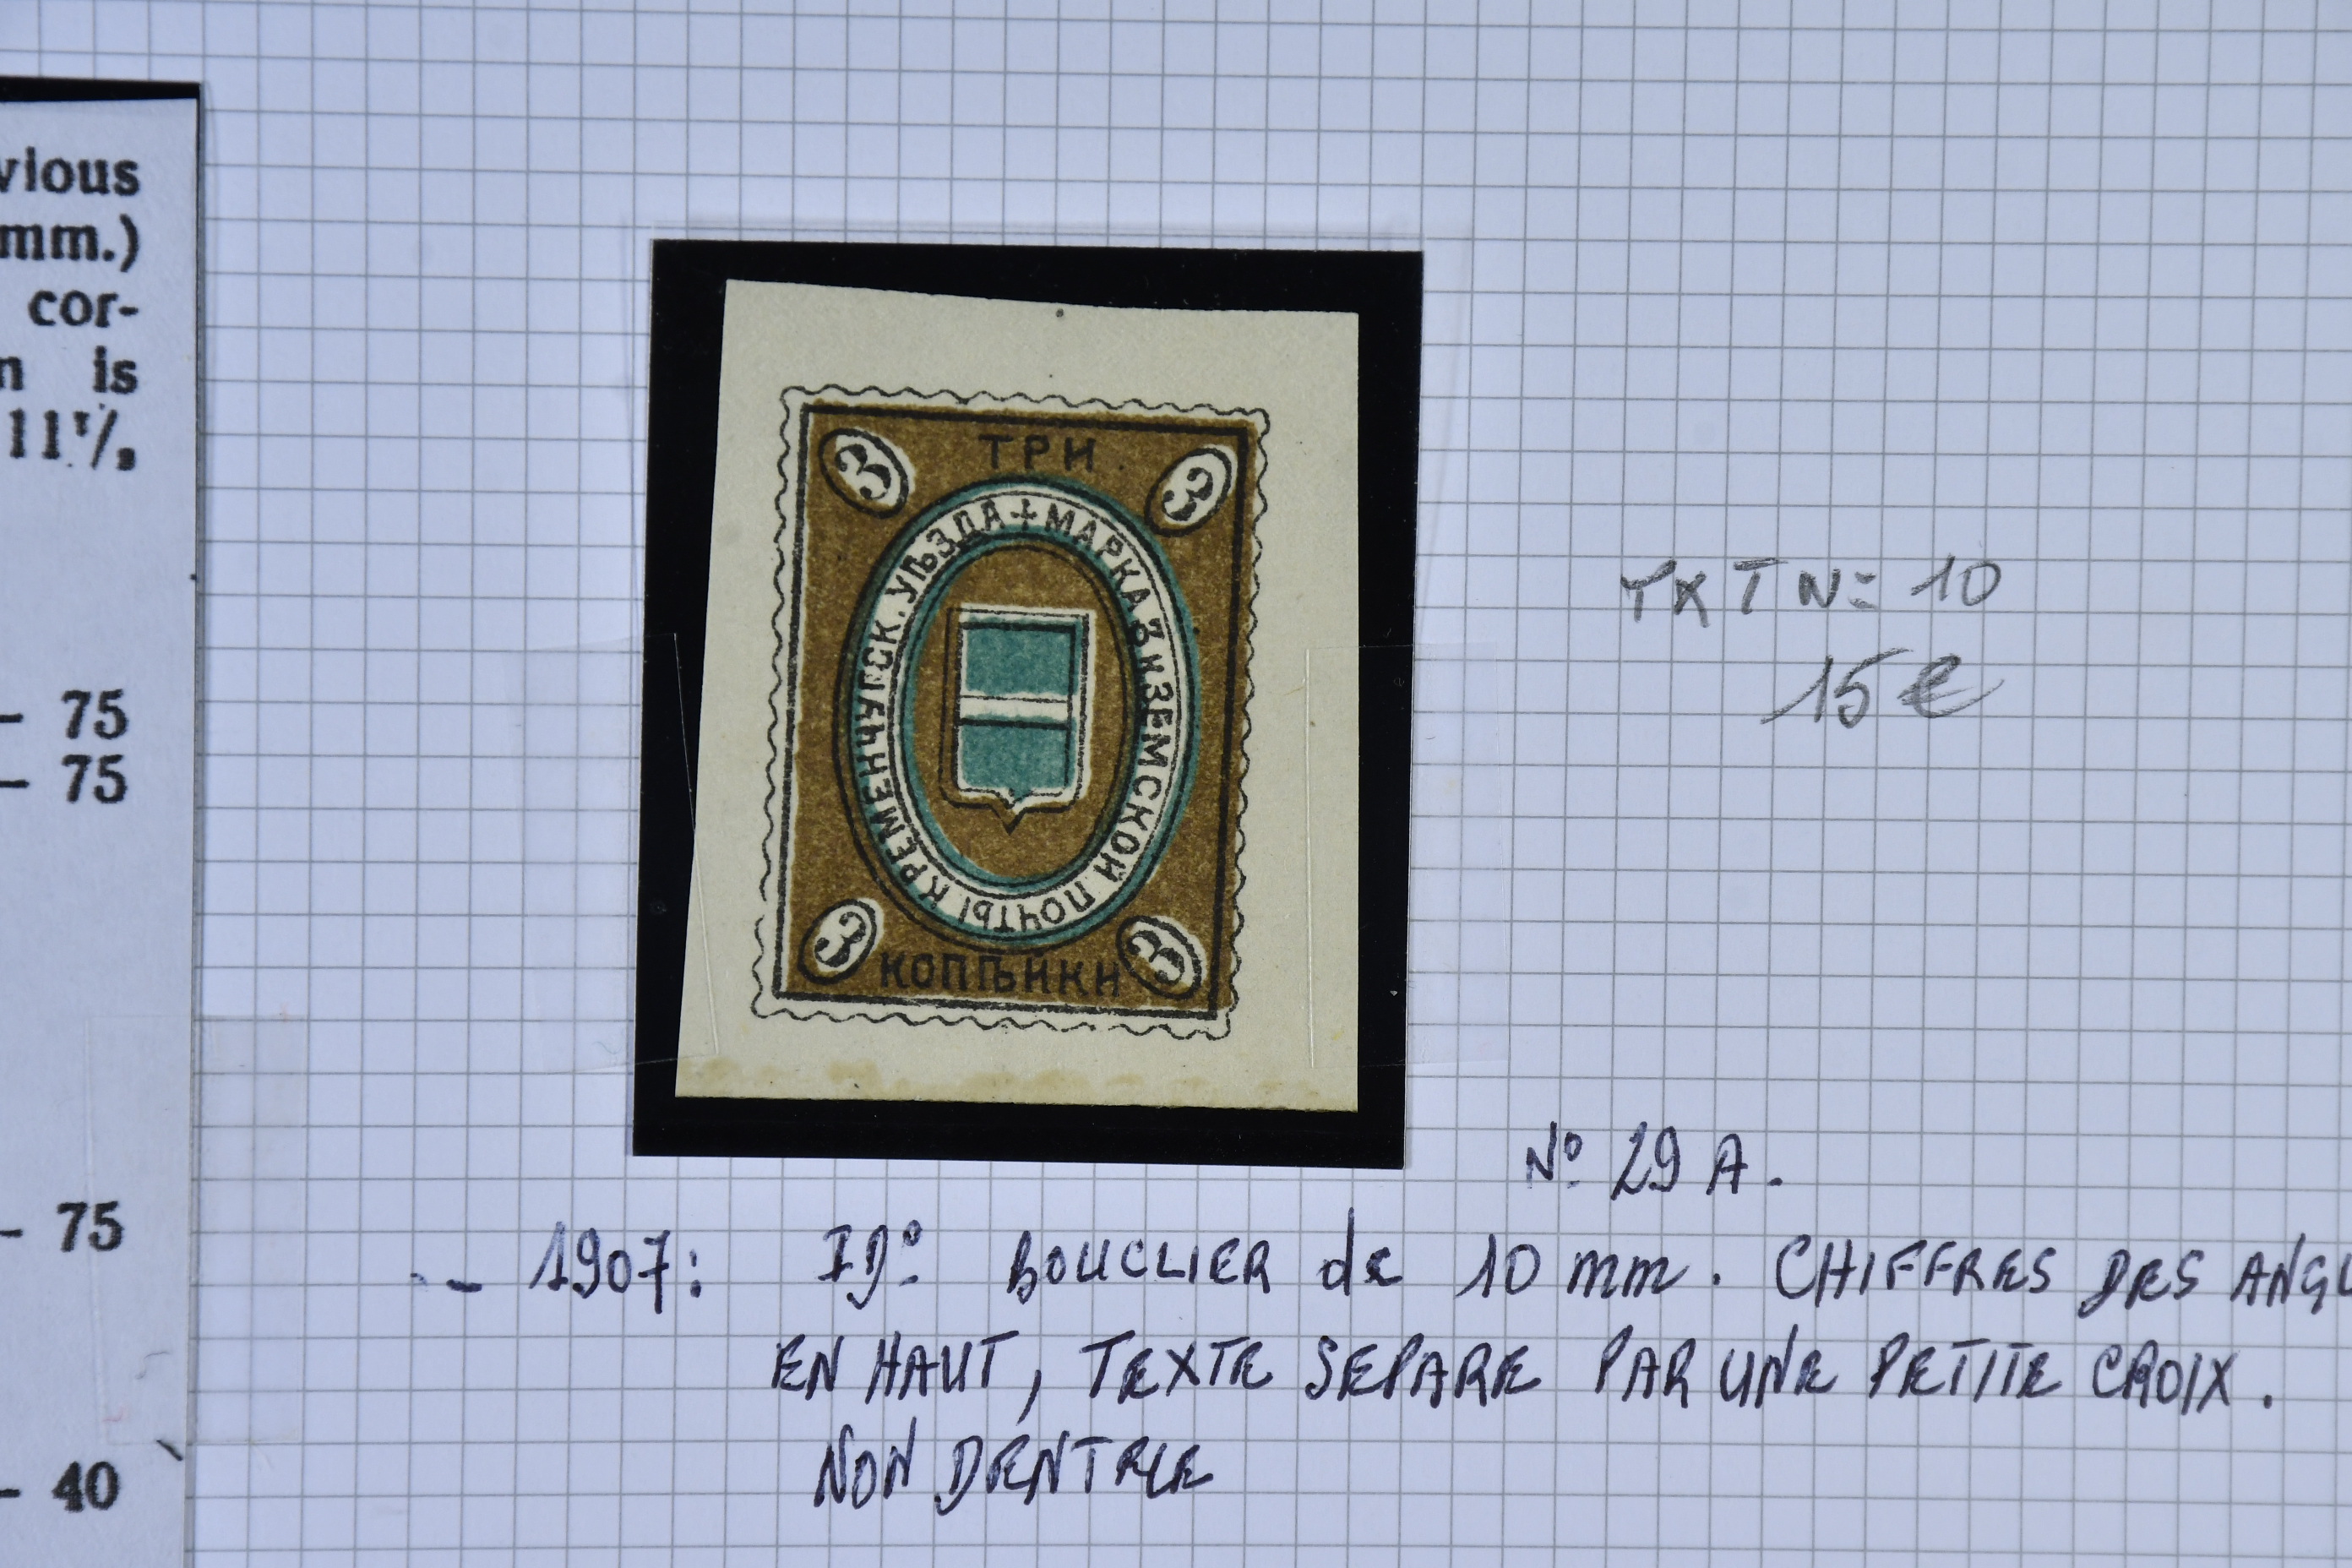 vious
mm.)
cor-
n is
11 1/2
- 75
- 75
- 75
- 40
ТРИ.
3 3
МАРКА 3 К ЗЕМСКОЙ ПОЧТЫ КРЕМЕНЧУГСК. УѢЗДА +
3 3
КОПѢЙКИ
TXT N= 10
15 €
Nº 29 A.
- 1907: IDº BOUCLIER de 10 mm. CHIFFRES DES ANGL
EN HAUT, TEXTE SEPARE PAR UNE PETITE CROIX.
NON DENTELE